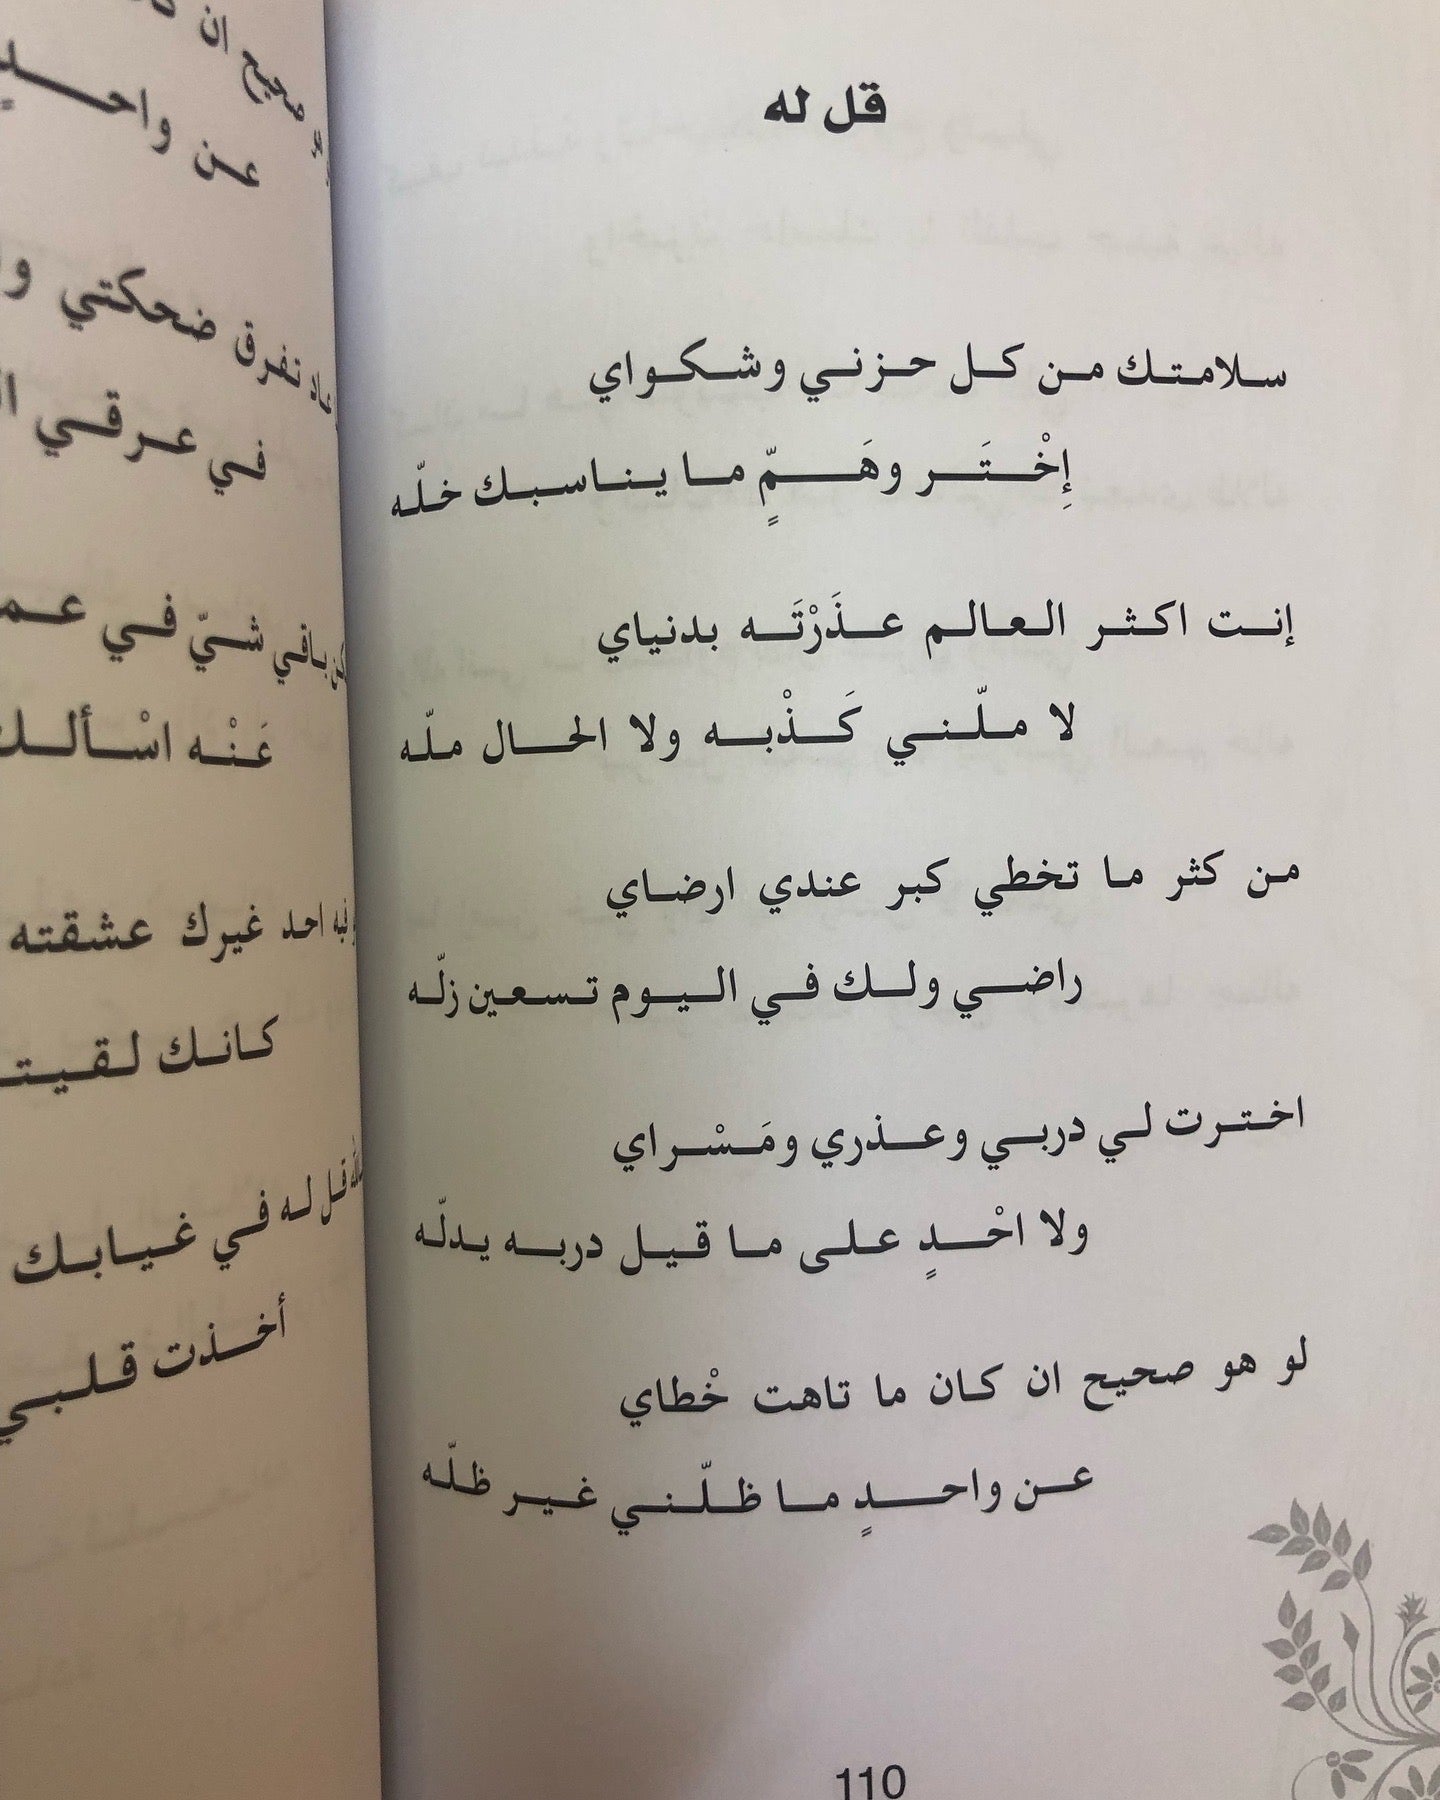 قل له
سلامتك من كل حزني وشكواي
إِخْتَر وهَمّ ما يناسبك خلّه
إنت اكثر العالم عذَرْتَه بدنياي
لا ملّني كَذْبه ولا الحال ملّه
من كثر ما تخطي كبر عندي ارضاي
راضي ولك في اليوم تسعين زلّه
اخترت لي دربي وعذري ومَسْراي
ولا احْدٍ على ما قيل دربه يدلّه
لو هو صحيح ان كان ما تاهت خْطاي
عن واحدٍ ما ظلّني غير ظلّه
110
صحيح ان
عن واحدٍ
تفرق ضحكتي
في عرقي
باقي شيّ في
عَنْه اسْألك
احد غيرك عشقته
كانك
قل له في غيابك
أخذت قلبي